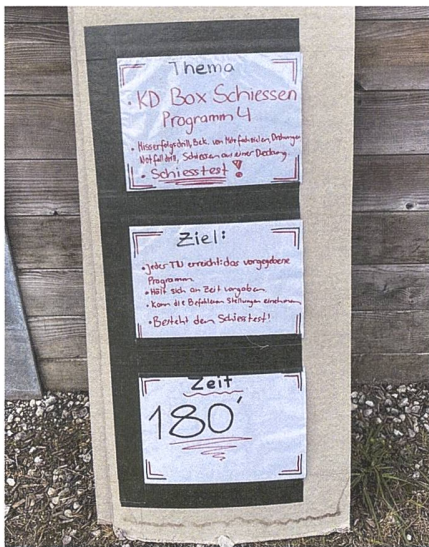 Thema
• KD Box Schiessen
Programm 4
• Misserfolgsdrill, Bek. von Mehrfachzielen, Drehungen
Notfalldrill, Schiessen aus einer Deckung.
• Schiesstest!
Ziel:
• Jeder TN erreicht: das vorgegebene
Programm
• Hält sich an Zeit vorgaben
• Kann die Befohlenen Stellungen einnehmen
• Besteht den Schiesstest!
Zeit
180'